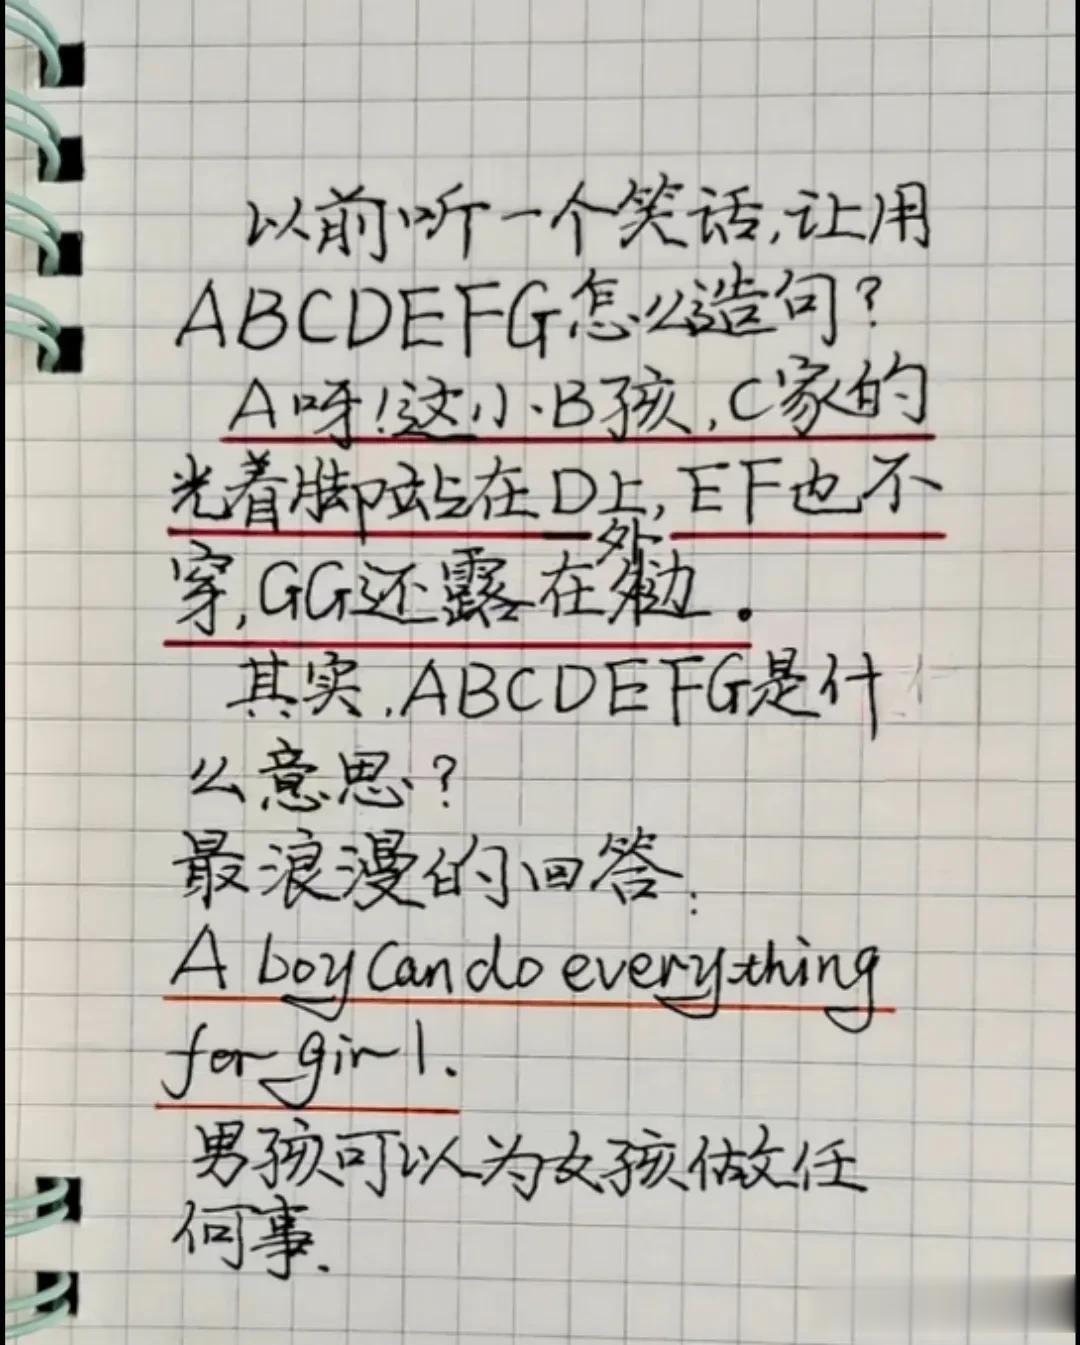 以前听一个笑话,让用
ABCDEFG怎么造句?
A呀!这小B孩,C家的
光着脚站在D上,EF也不
穿,GG还露在外边.
其实,ABCDEFG是什
么意思?
最浪漫的回答:
A boy can do everything
for girl.
男孩可以为女孩做任
何事.